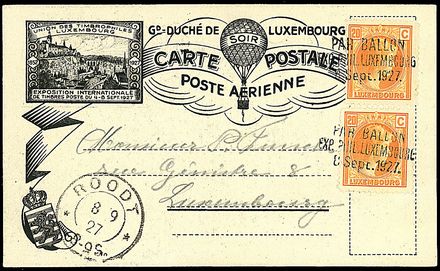 UNION DES TIMBROPHILES
LUXEMBOURG
EXPOSITION INTERNATIONALE
DE TIMBRES POSTE DU 4-8 SEPT. 1927
Gᴅ-DUCHÉ DE LUXEMBOURG
SOIR
CARTE POSTALE
POSTE AÉRIENNE
20 C
LUXEMBOURG
PAR BALLON
EXP. PHIL. LUXEMBOURG
8 Sept. 1927.
20 C
LUXEMBOURG
PAR BALLON
EXP. PHIL. LUXEMBOURG
8 Sept. 1927.
Monsieur P.
rue 8
Luxembourg
ROODT
8 9
27